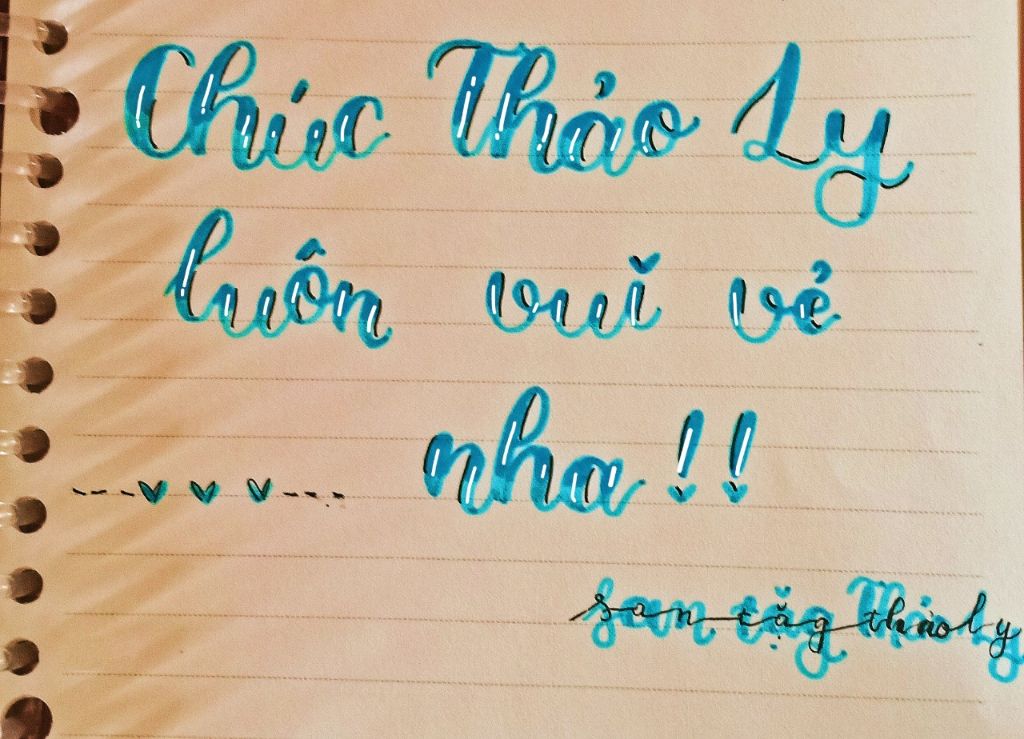 Chúc Thảo Ly
luôn vuĭ vẻ
nha!!
san tặg thảo ly